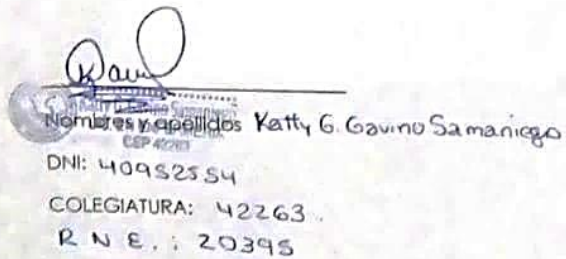 Nombres y apellidos Katty G. Gavino Samaniego
CEP 42263
DNI: 40952554
COLEGIATURA: 42263.
R N E. : 20395